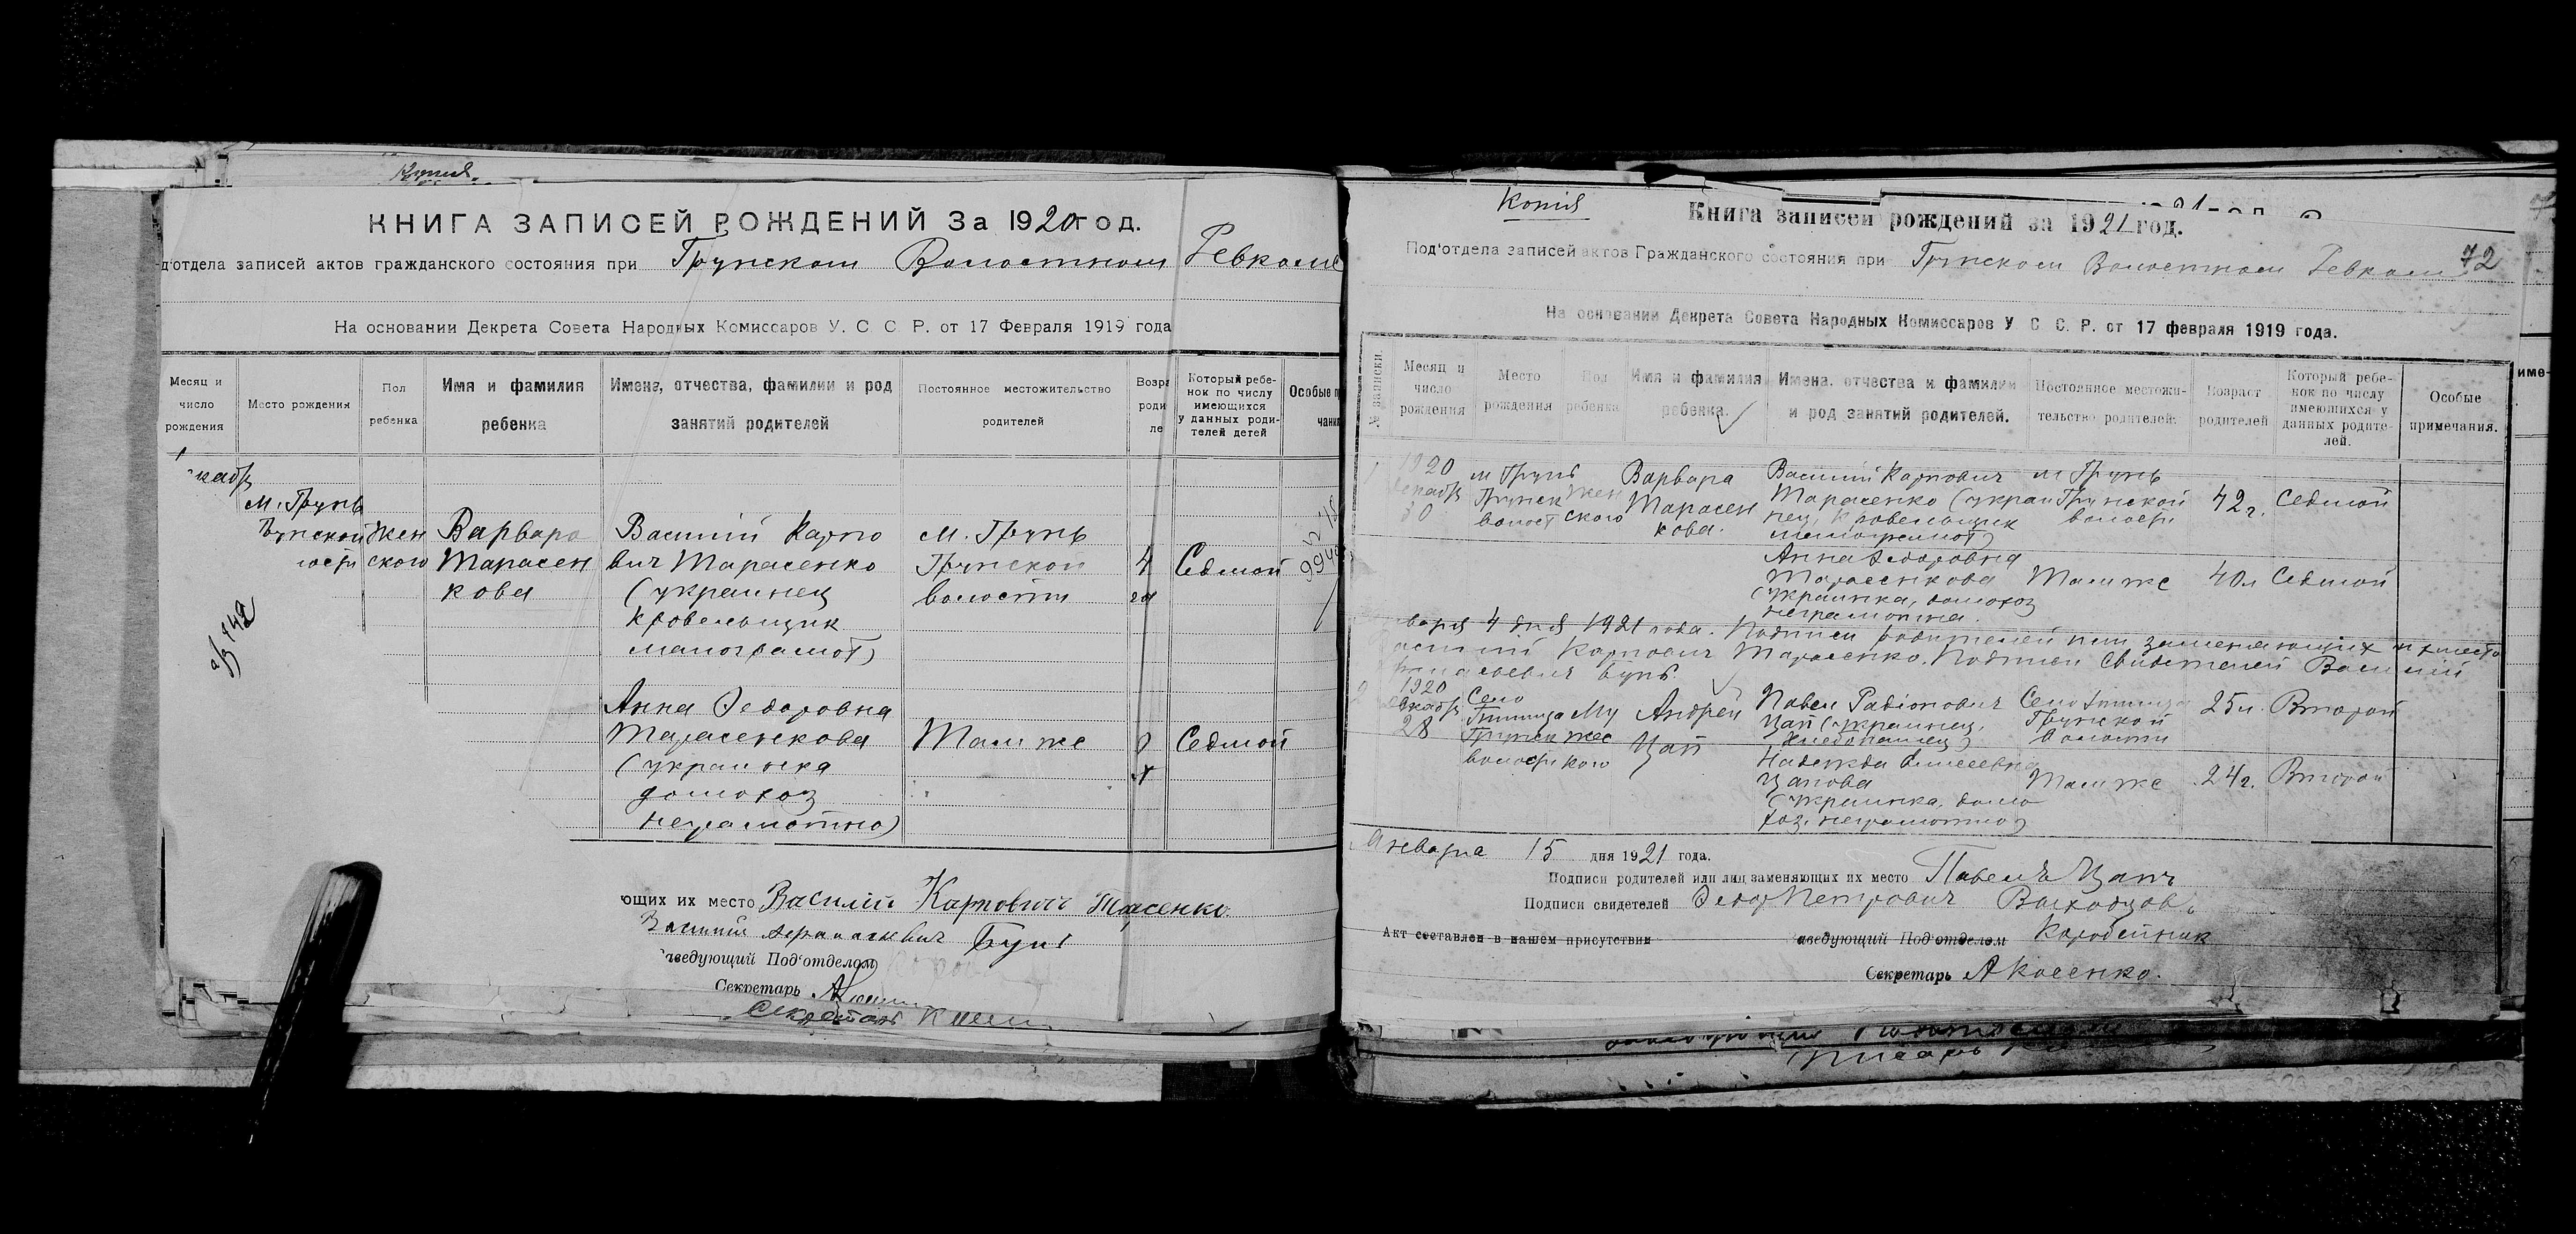 Копия
КНИГА ЗАПИСЕЙ РОЖДЕНИЙ За 1920 год.
д'отдела записей актов гражданского состояния при Грунском Волостном Ревкоме
На основании Декрета Совета Народных Комиссаров У. С. С. Р. от 17 Февраля 1919 года
Месяц и число рождения
Место рождения
Пол ребенка
Имя и фамилия ребенка
Имена, отчества, фамилии и род занятий родителей
Постоянное местожительство родителей
Возра роди ле
Который ребе-
нок по числу
имеющихся
у данных роди-
телей детей
Особые п
чания
кабр
м. Грунь
Грунской Жен Варвара Василий Карпо м. Грунь
ости ского Тарасен вич Тарасенко Грунской 4 Седмой
кова (украинец волости
кровельщик
малограмот)
Анна Федоровна
Тарасенкова Там же Седмой
(украинка
домохоз
неграмотна)
ющих их место Василий Карпович Тарасенко
Василий Афанасиевич Бунь
Заведующий Под'отделом
Секретарь
Секретарь
Копия
Книга записей рождений за 1921 год.
72
Под'отдела записей актов Гражданского состояния при Грунском Волостном Ревком
На основании Декрета Совета Народных Комиссаров У. С. С. Р. от 17 февраля 1919 года.
№ записки.
Месяц и число рождения
Место рождения
Пол ребенка
Имя и фамилия ребенка.
Имена, отчества и фамилии и род занятий родителей.
Постоянное местожи-
тельство родителей.
Возраст родителей
Который ребе-
нок по числу
имеющихся у
данных родите-
лей.
Особые примечания.
1 1920 м Грунь Варвара Василий Карпович м Грунь
декабр Грунск жен Тарасен Тарасенко (украи Грунской 42 г. Седмой
30 волост ского кова. нец, кровельщик волости
малограмот)
Анна Федоровна
Тарасенкова Там же 40 л Седмой
(украинка, домохоз
неграмотна.
января 4 дня 1921 года. Подписи родителей или заменяющих их место
Василий Карпович Тарасенко. Подписи свидетелей Василий
Афанасиевич Бунь.
2 1920 Село Павел Радионович Село
декабр Му Андрей Цап (украинец, Грунской 25 л. Второй
28 Грунск жес Цап хлебопашец) волости
волости кого Надежда
Цапова Там же 24 г. Второй
(украинка, домо
хоз. неграмотна)
Января 15 дня 1921 года.
Подписи родителей или лиц заменяющих их место Павел Цапъ
Подписи свидетелей Федор Петрович Выходцев
Акт составлен в нашем присутствии Заведующий Под'отделом Коробейник
Секретарь А Косенко.